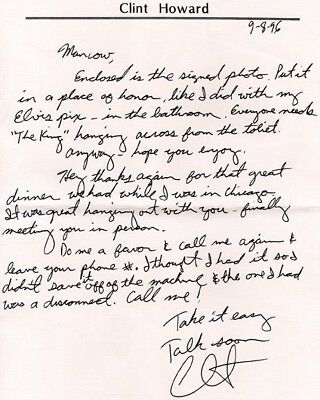 Clint Howard
9-8-96
Mancow,
Enclosed is the signed photo. Put it
in a place of honor, like I did with my
Elvis pix - in the bathroom. Everyone needs
"The King" hanging across from the toilet.
Anyway - hope you enjoy.
Hey, thanks again for that great
dinner we had while I was in Chicago.
It was great hanging out with you - finally
meeting you in person.
Do me a favor & call me again &
leave your phone #. I thought I had it so I
didn't save it off of the machine & the one I had
was a disconnect. Call me!
Take it easy
Talk soon